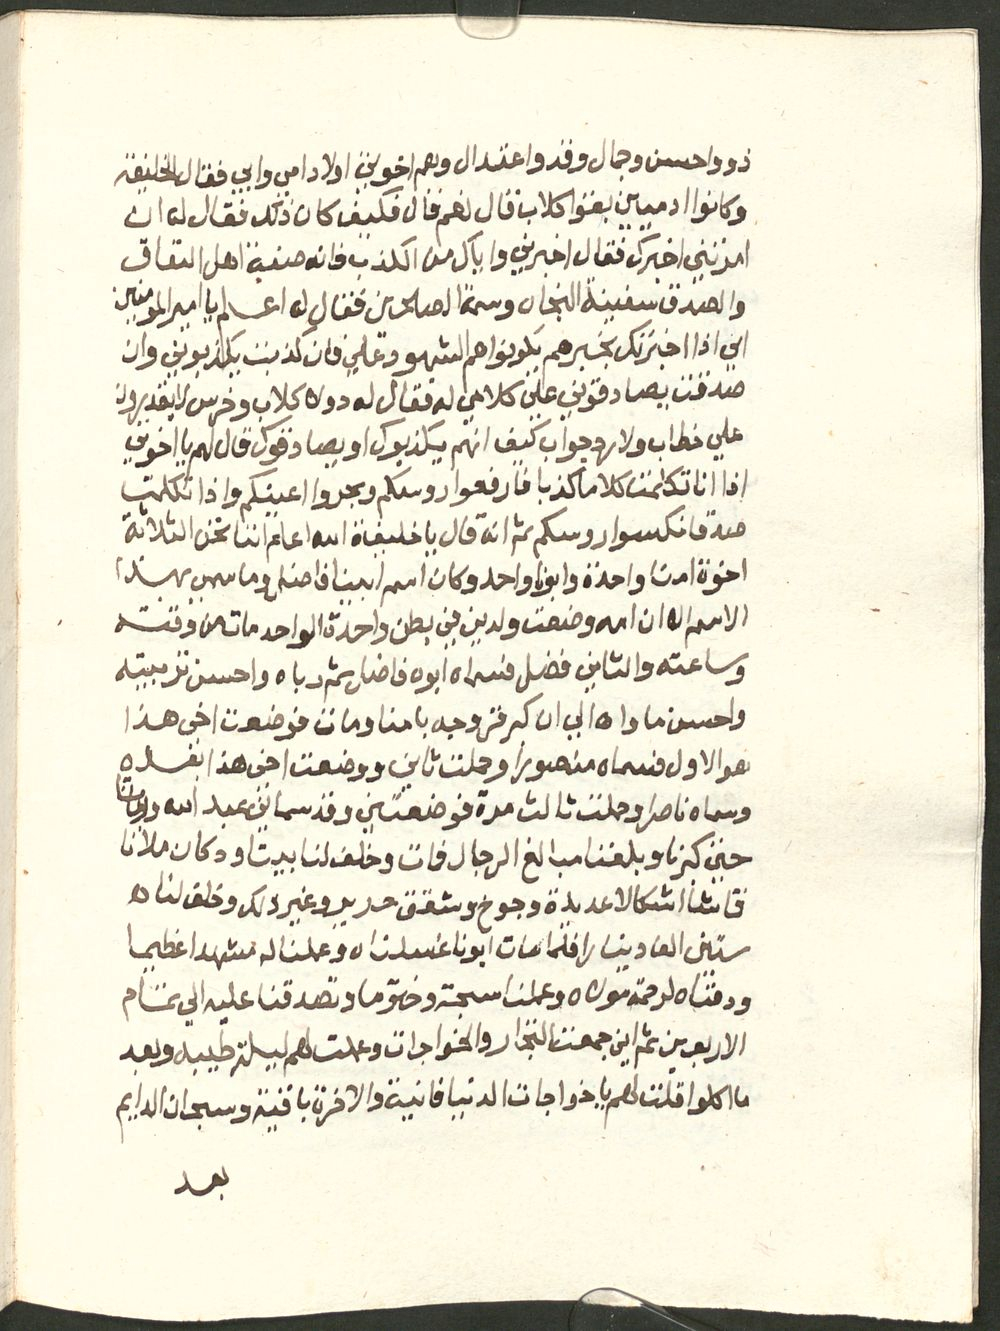 ذووا حسن وجمال وقد واعتدال وهم اخوتي اولاد امي وابي فقال الخليفة
وكانوا ادميين بقوا كلاب قال لهم قال فكيف كان ذلك فقال له ان
امرتني اخبرك فقال اخبرني واياك من الكذب فانه صفة اهل النفاق
والصدق سفينة النجاه وسمة الصالحين فقال له اعلم يا امير المومنين
اني اذا اخبرتك بخبرهم يكونوا هم الشهود علي فان كذبت يكذبوني وان
صدقت يصادقوني علي كلامي له فقال له دول كلاب وخرس لا يقديروان
علي خطاب ولا رد جواب كيف انهم يكذبوك او يصادقوك قال لهم يا اخوتي
اذا انا تكلمت كلاما كذبا فارفعوا روسكم وبحروا اعينكم واذا تكلمت
صدقا نكسوا روسكم ثم انه قال يا خليفة الله اعلم اننا نحن الثلاثة
اخوة امنا واحدة وابونا واحد وكان اسم ابينا فاضل وما سمي بهذا
الاسم الا ان امه وضعت ولدين في بطن واحدة الواحد مات من وقته
وساعته والثاني فضل فسماه ابوه فاضل ثم رباه واحسن تربيته
واحسن ماواه الي ان كبر فزوجه بامنا ومات فوضعت اخي هذا
هو الاول فسماه منصورا وحملت ثاني ووضعت اخي هذا بعده
وسماه ناصرا وحملت ثالث مرة فوضعتني وقد سماني عبد الله وربانا
حتي كبرنا وبلغنا مبالغ الرجال فمات وخلف لنا بيتا ودكان ملانا
قماشا اشكالا عديدة وجوخ وشقق حرير وغير ذلك وخلف لنا
ستين الف دينارا فلما مات ابونا غسلناه وعملنا له مشهدا عظيما
ودفناه لرحمة مولاه وعملنا سبحة وختوما وتصدقنا عليه الي تمام
الاربعين ثم اني جمعت التجار والخواجات وعملت لهم ليلة طيبه وبعد
ما اكلوا قلت لهم يا خواجات الدنيا فانية والاخرة باقية وسبحان الدايم
بعد